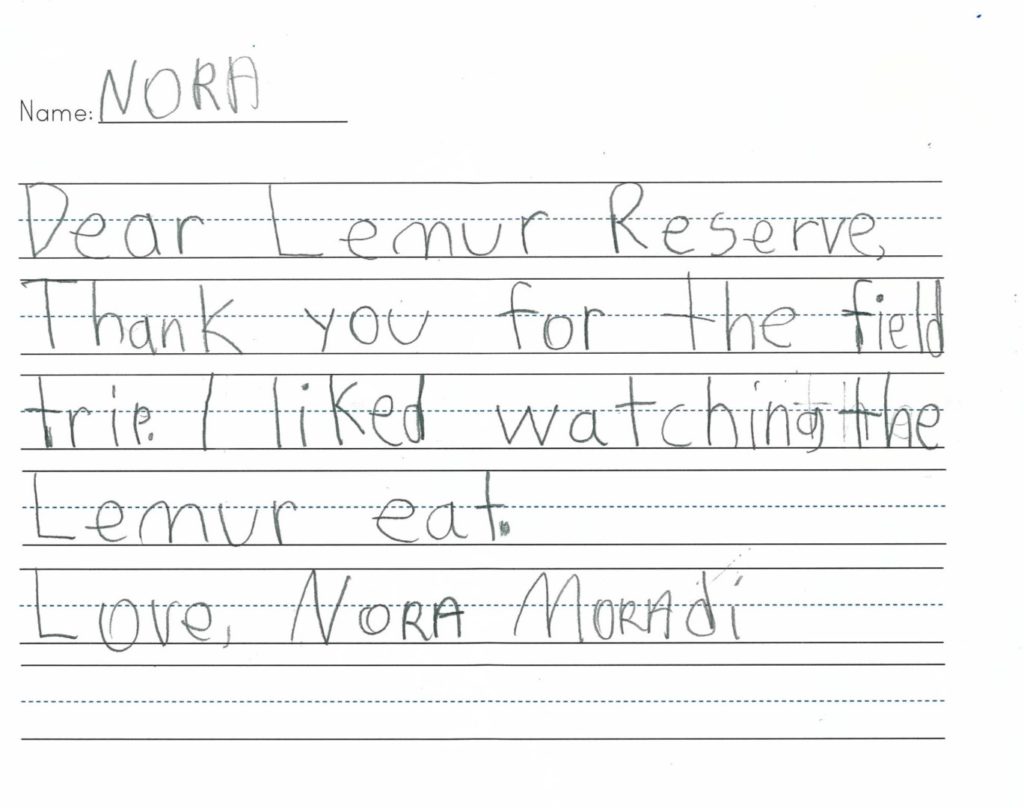 Name: NORA
Dear Lemur Reserve,
Thank you for the field
trip. I liked watching the
Lemur eat.
Love, NORA MORAdi